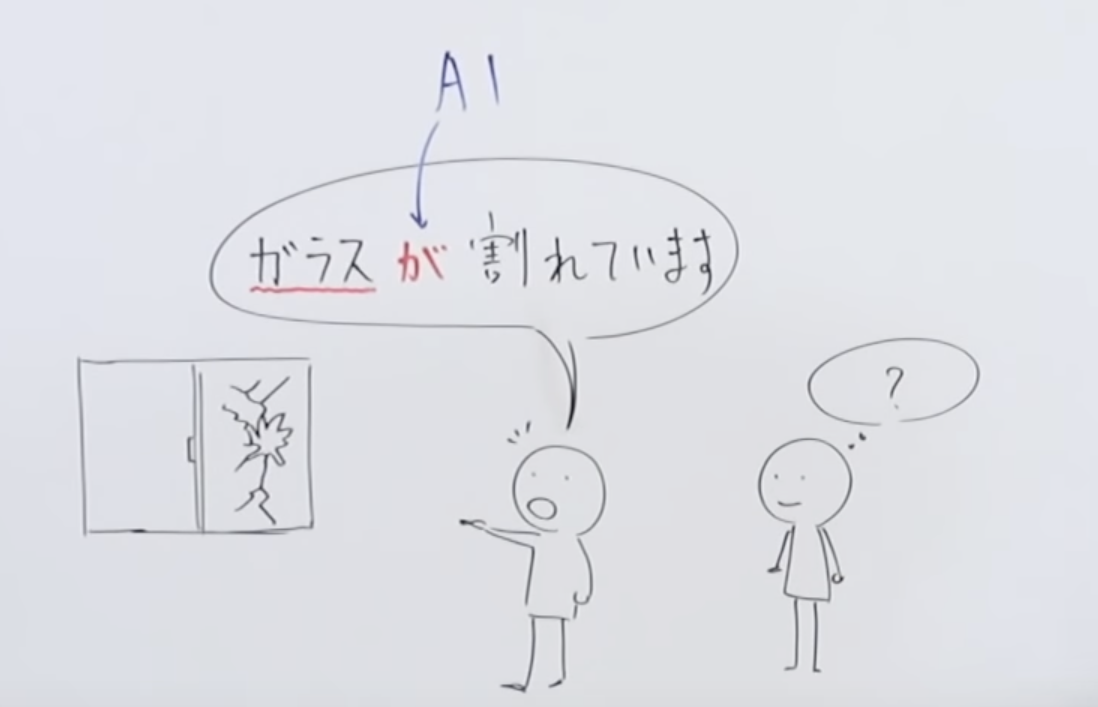 A1
ガラスが割れています
?